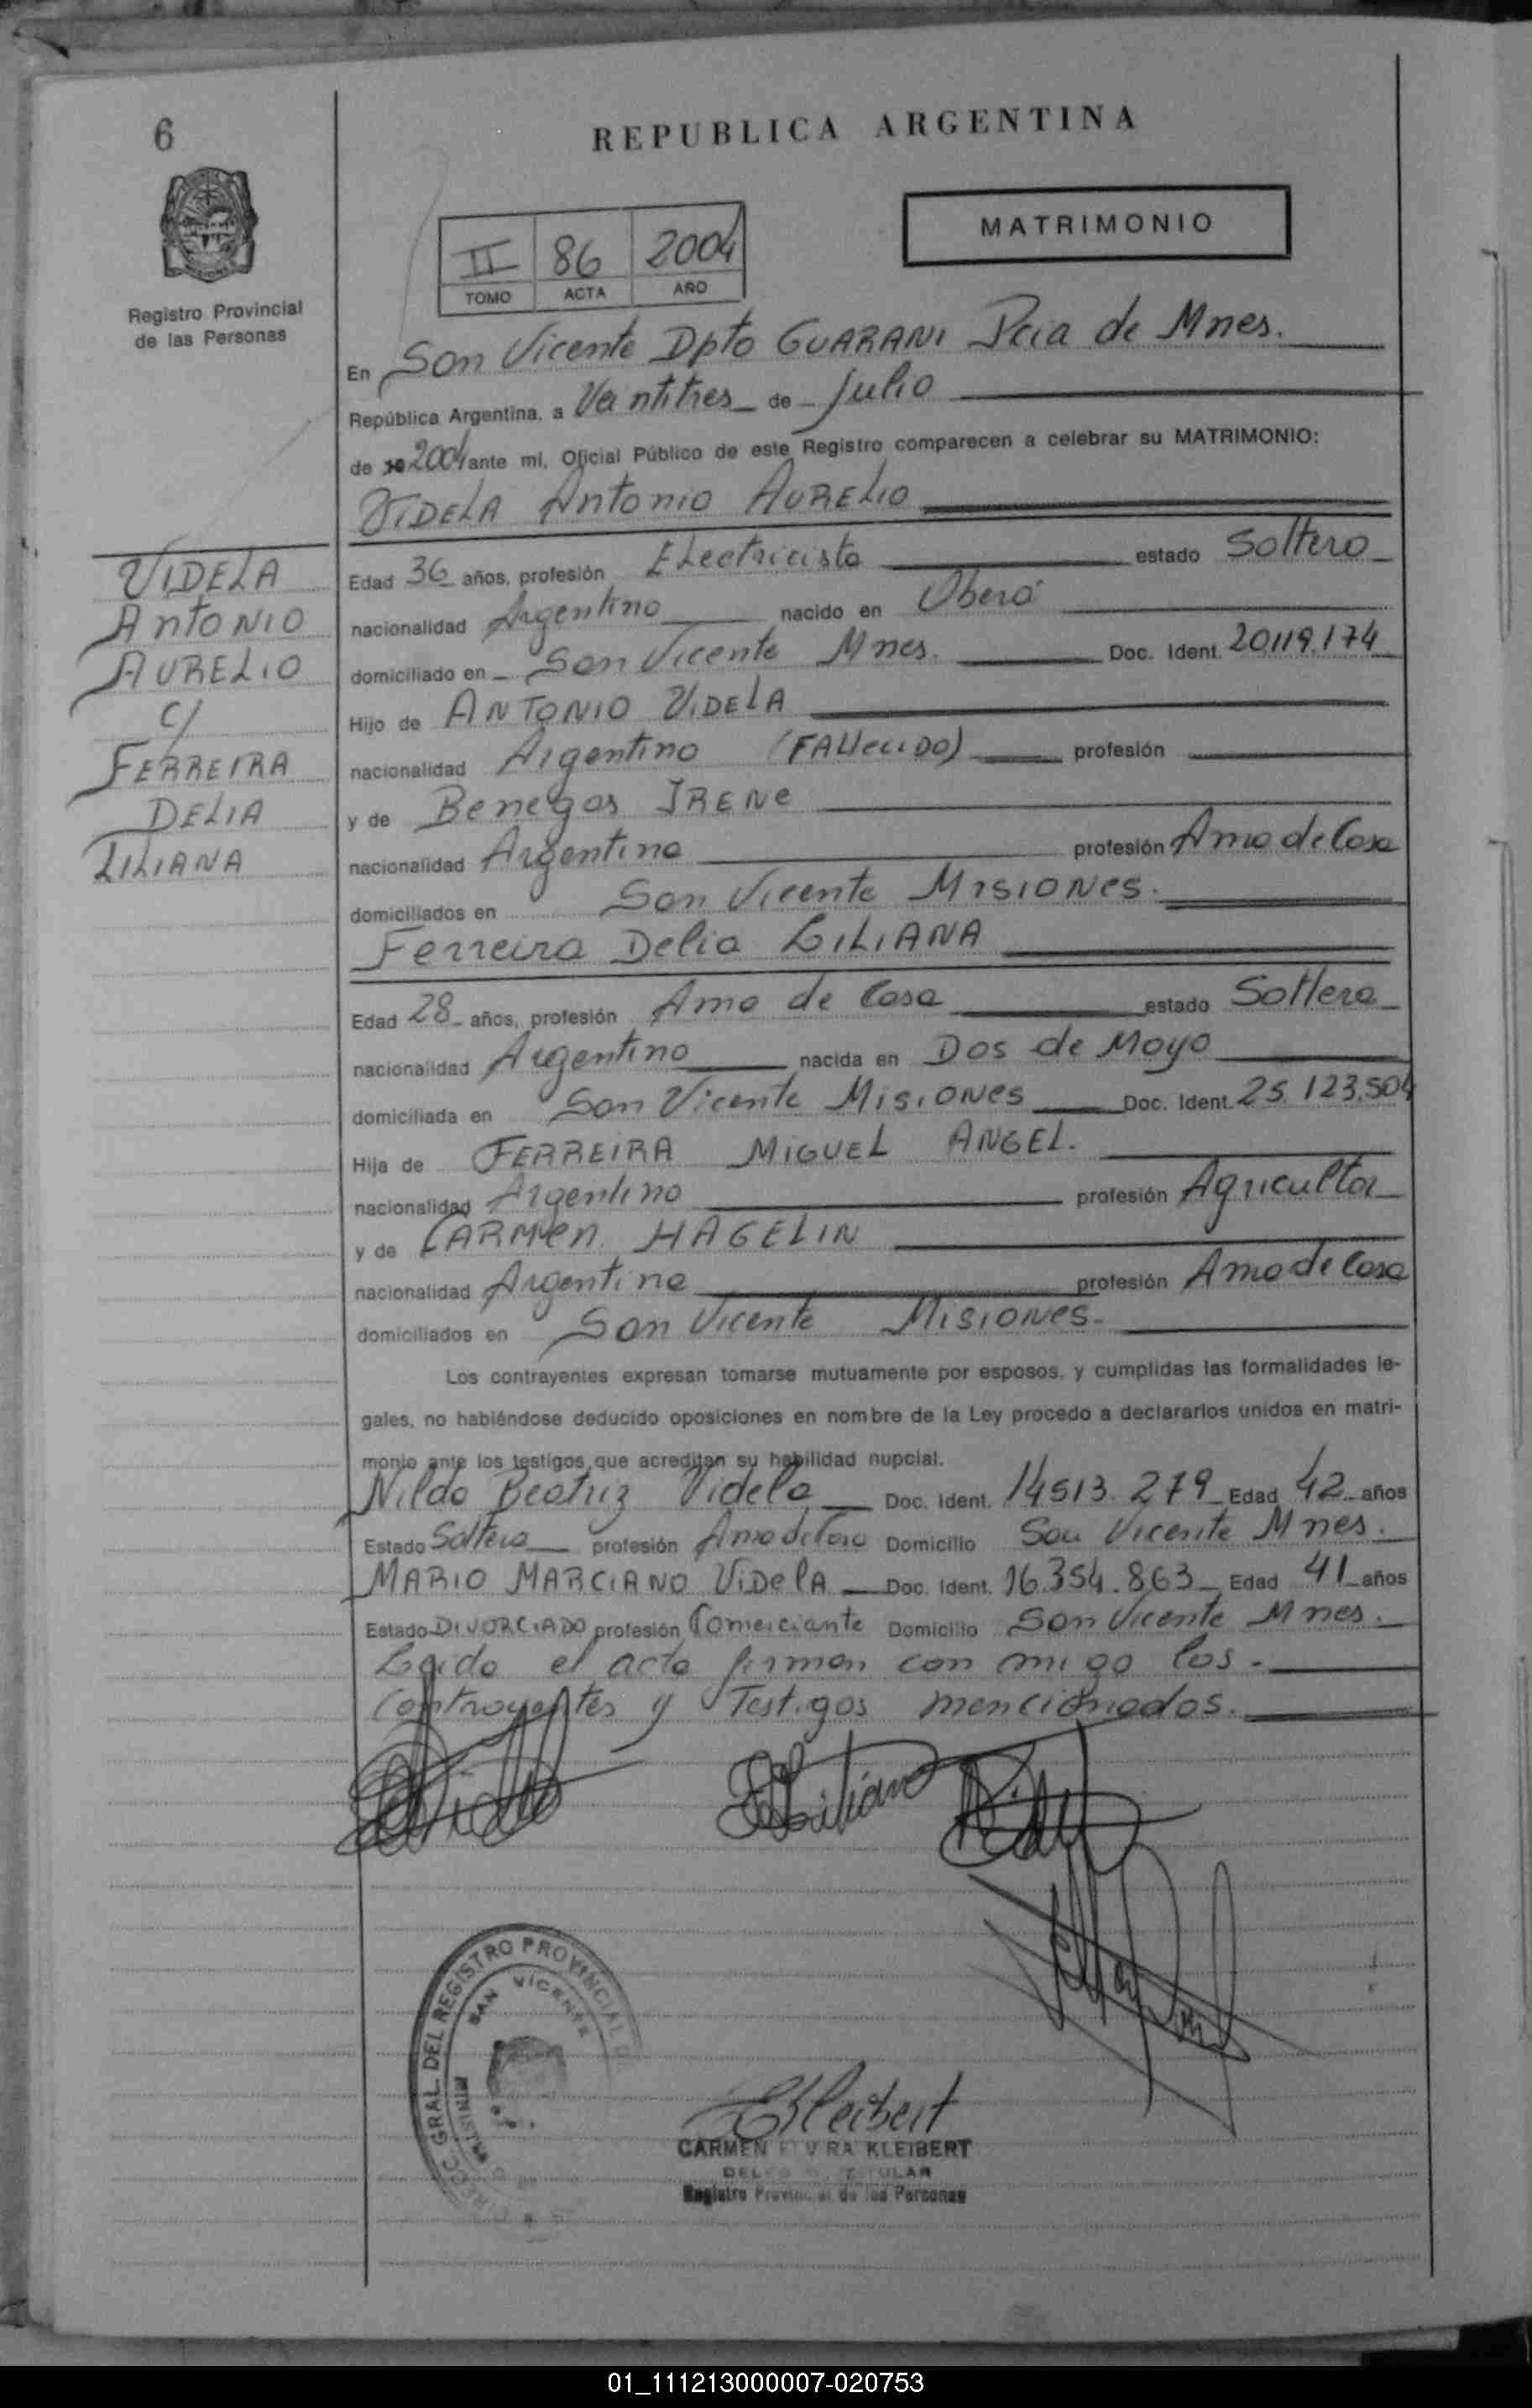 6
REPUBLICA ARGENTINA
MATRIMONIO
II 86 2004
TOMO ACTA AÑO
Registro Provincial
de las Personas
En San Vicente Dpto GUARANI Pcia de Mnes.
República Argentina, a Veintitres de Julio
de 2004 ante mí, Oficial Público de este Registro comparecen a celebrar su MATRIMONIO:
VIDELA Antonio AURELIO
VIDELA
ANTONIO
AURELIO
C/
FERREIRA
DELIA
LILIANA
Edad 36 años, profesión Electricista estado Soltero
nacionalidad Argentino nacido en Oberá
domiciliado en San Vicente Mnes. Doc. Ident. 20119.174
Hijo de ANTONIO VIDELA
nacionalidad Argentino (FALLECIDO) profesión
y de Benegas IRENE
nacionalidad Argentina profesión Ama de Casa
domiciliados en San Vicente MISIONES.
Ferreira Delia LILIANA
Edad 28 años, profesión Ama de Casa estado Soltera
nacionalidad Argentina nacida en Dos de Mayo
domiciliada en San Vicente Misiones Doc. Ident. 25.123.504
Hija de FERREIRA MIGUEL ANGEL.
nacionalidad Argentino profesión Agricultor
y de CARMEN HAGELIN
nacionalidad Argentina profesión Ama de Casa
domiciliados en San Vicente Misiones.
Los contrayentes expresan tomarse mutuamente por esposos, y cumplidas las formalidades le-
gales, no habiéndose deducido oposiciones en nombre de la Ley procedo a declararlos unidos en matri-
monio ante los testigos que acreditan su habilidad nupcial.
Nilda Beatriz Videla Doc. Ident. 14513.279 Edad 42 años
Estado Soltera profesión Ama de Casa Domicilio San Vicente Mnes.
MARIO MARCIANO VIDELA Doc. Ident. 16.354.863 Edad 41 años
Estado DIVORCIADO profesión Comerciante Domicilio San Vicente Mnes.
Leida el acta firman con migo los
Contrayentes y Testigos mencionados.
Liliana
GRAL. DEL REGISTRO PROVINCIAL
SAN VICENTE
Kleibert
CARMEN ELVIRA KLEIBERT
Registro Provincial de las Personas
01_111213000007-020753